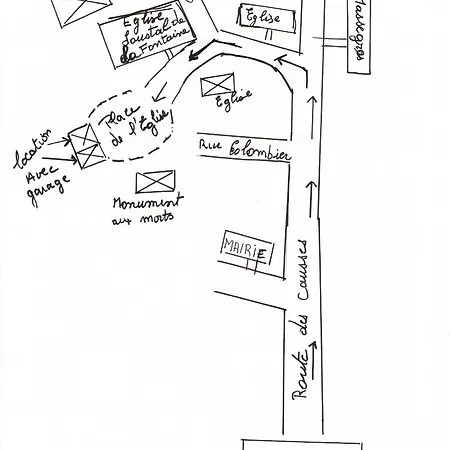 Eglise
Loustal de
La Fontaine
Eglise
Massegros
Eglise
Place
de l'Eglise
location
Avec
garage
Rue Colombier
Monument
aux morts
MAIRIE
Route des Causses